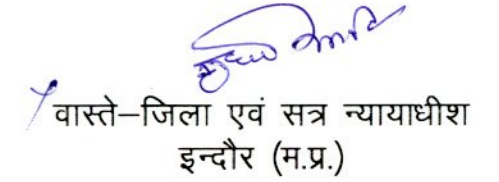 वास्ते–जिला एवं सत्र न्यायाधीश
इन्दौर (म.प्र.)